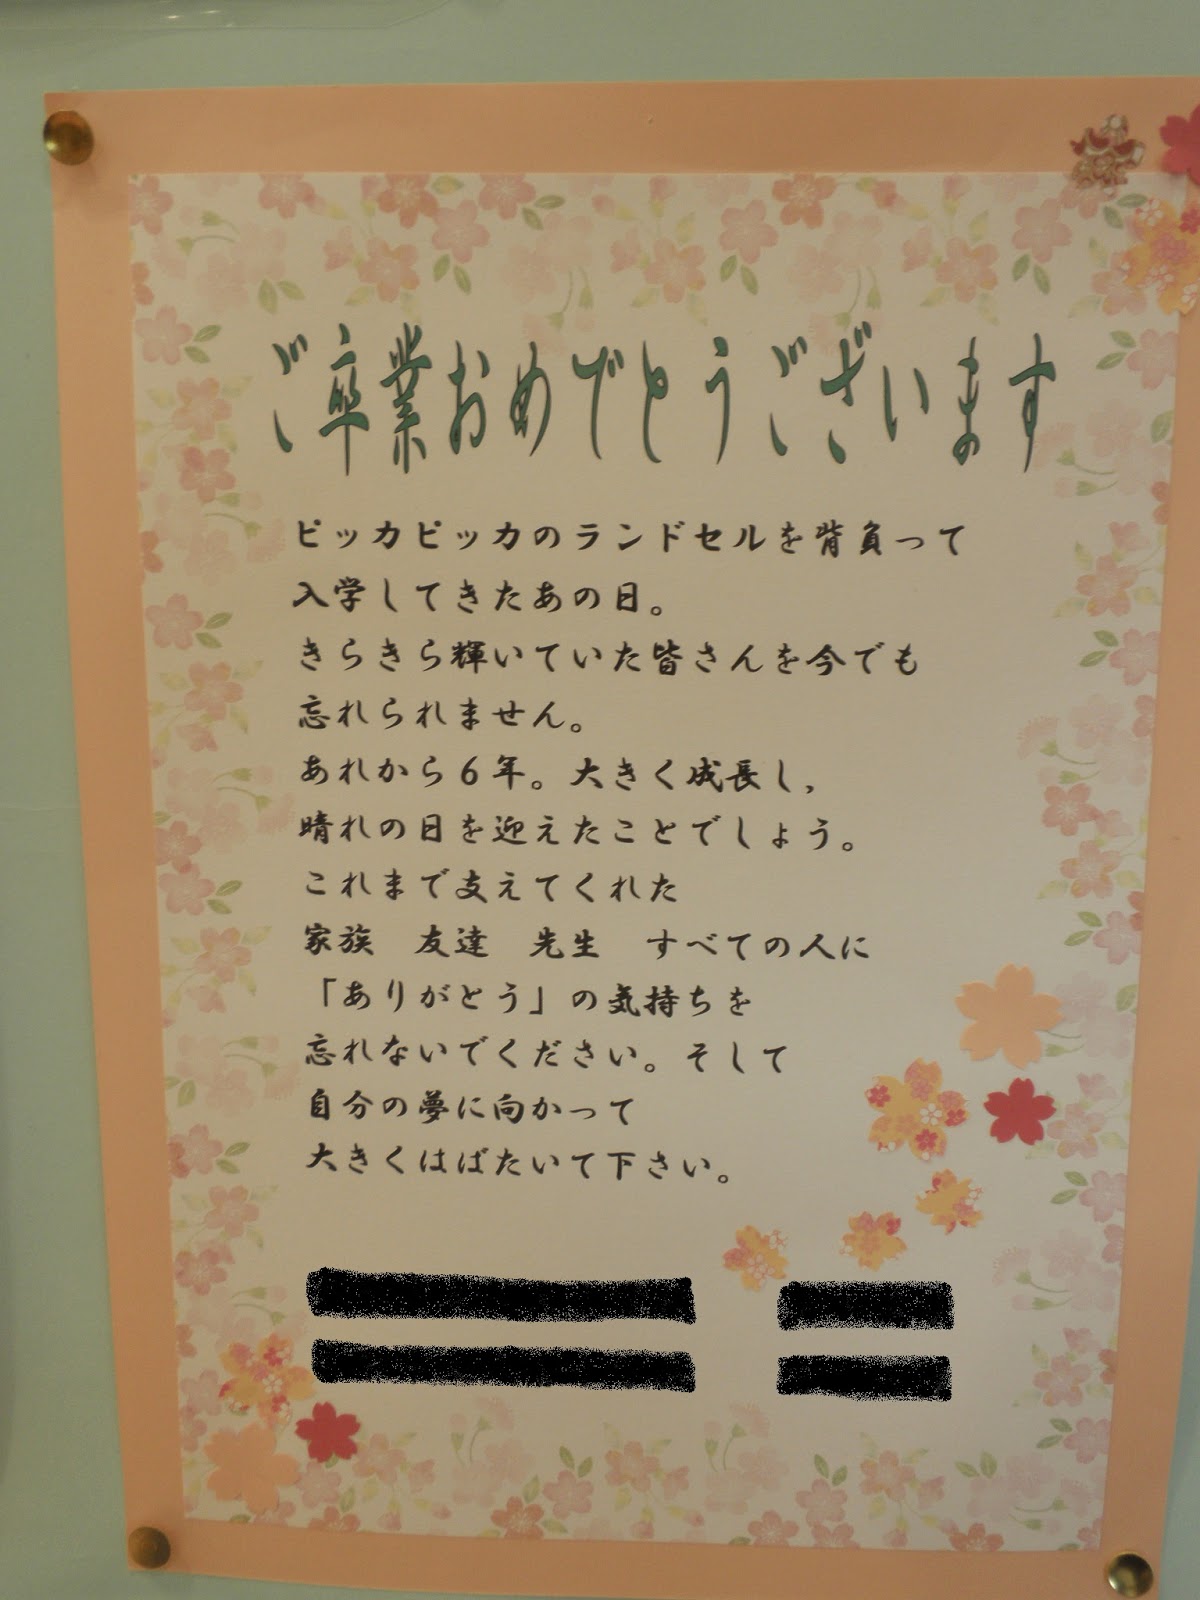 ご卒業おめでとうございます
ピッカピッカのランドセルを背負って
入学してきたあの日。
きらきら輝いていた皆さんを今でも
忘れられません。
あれから6年。大きく成長し，
晴れの日を迎えたことでしょう。
これまで支えてくれた
家族　友達　先生　すべての人に
「ありがとう」の気持ちを
忘れないでください。そして
自分の夢に向かって
大きくはばたいて下さい。